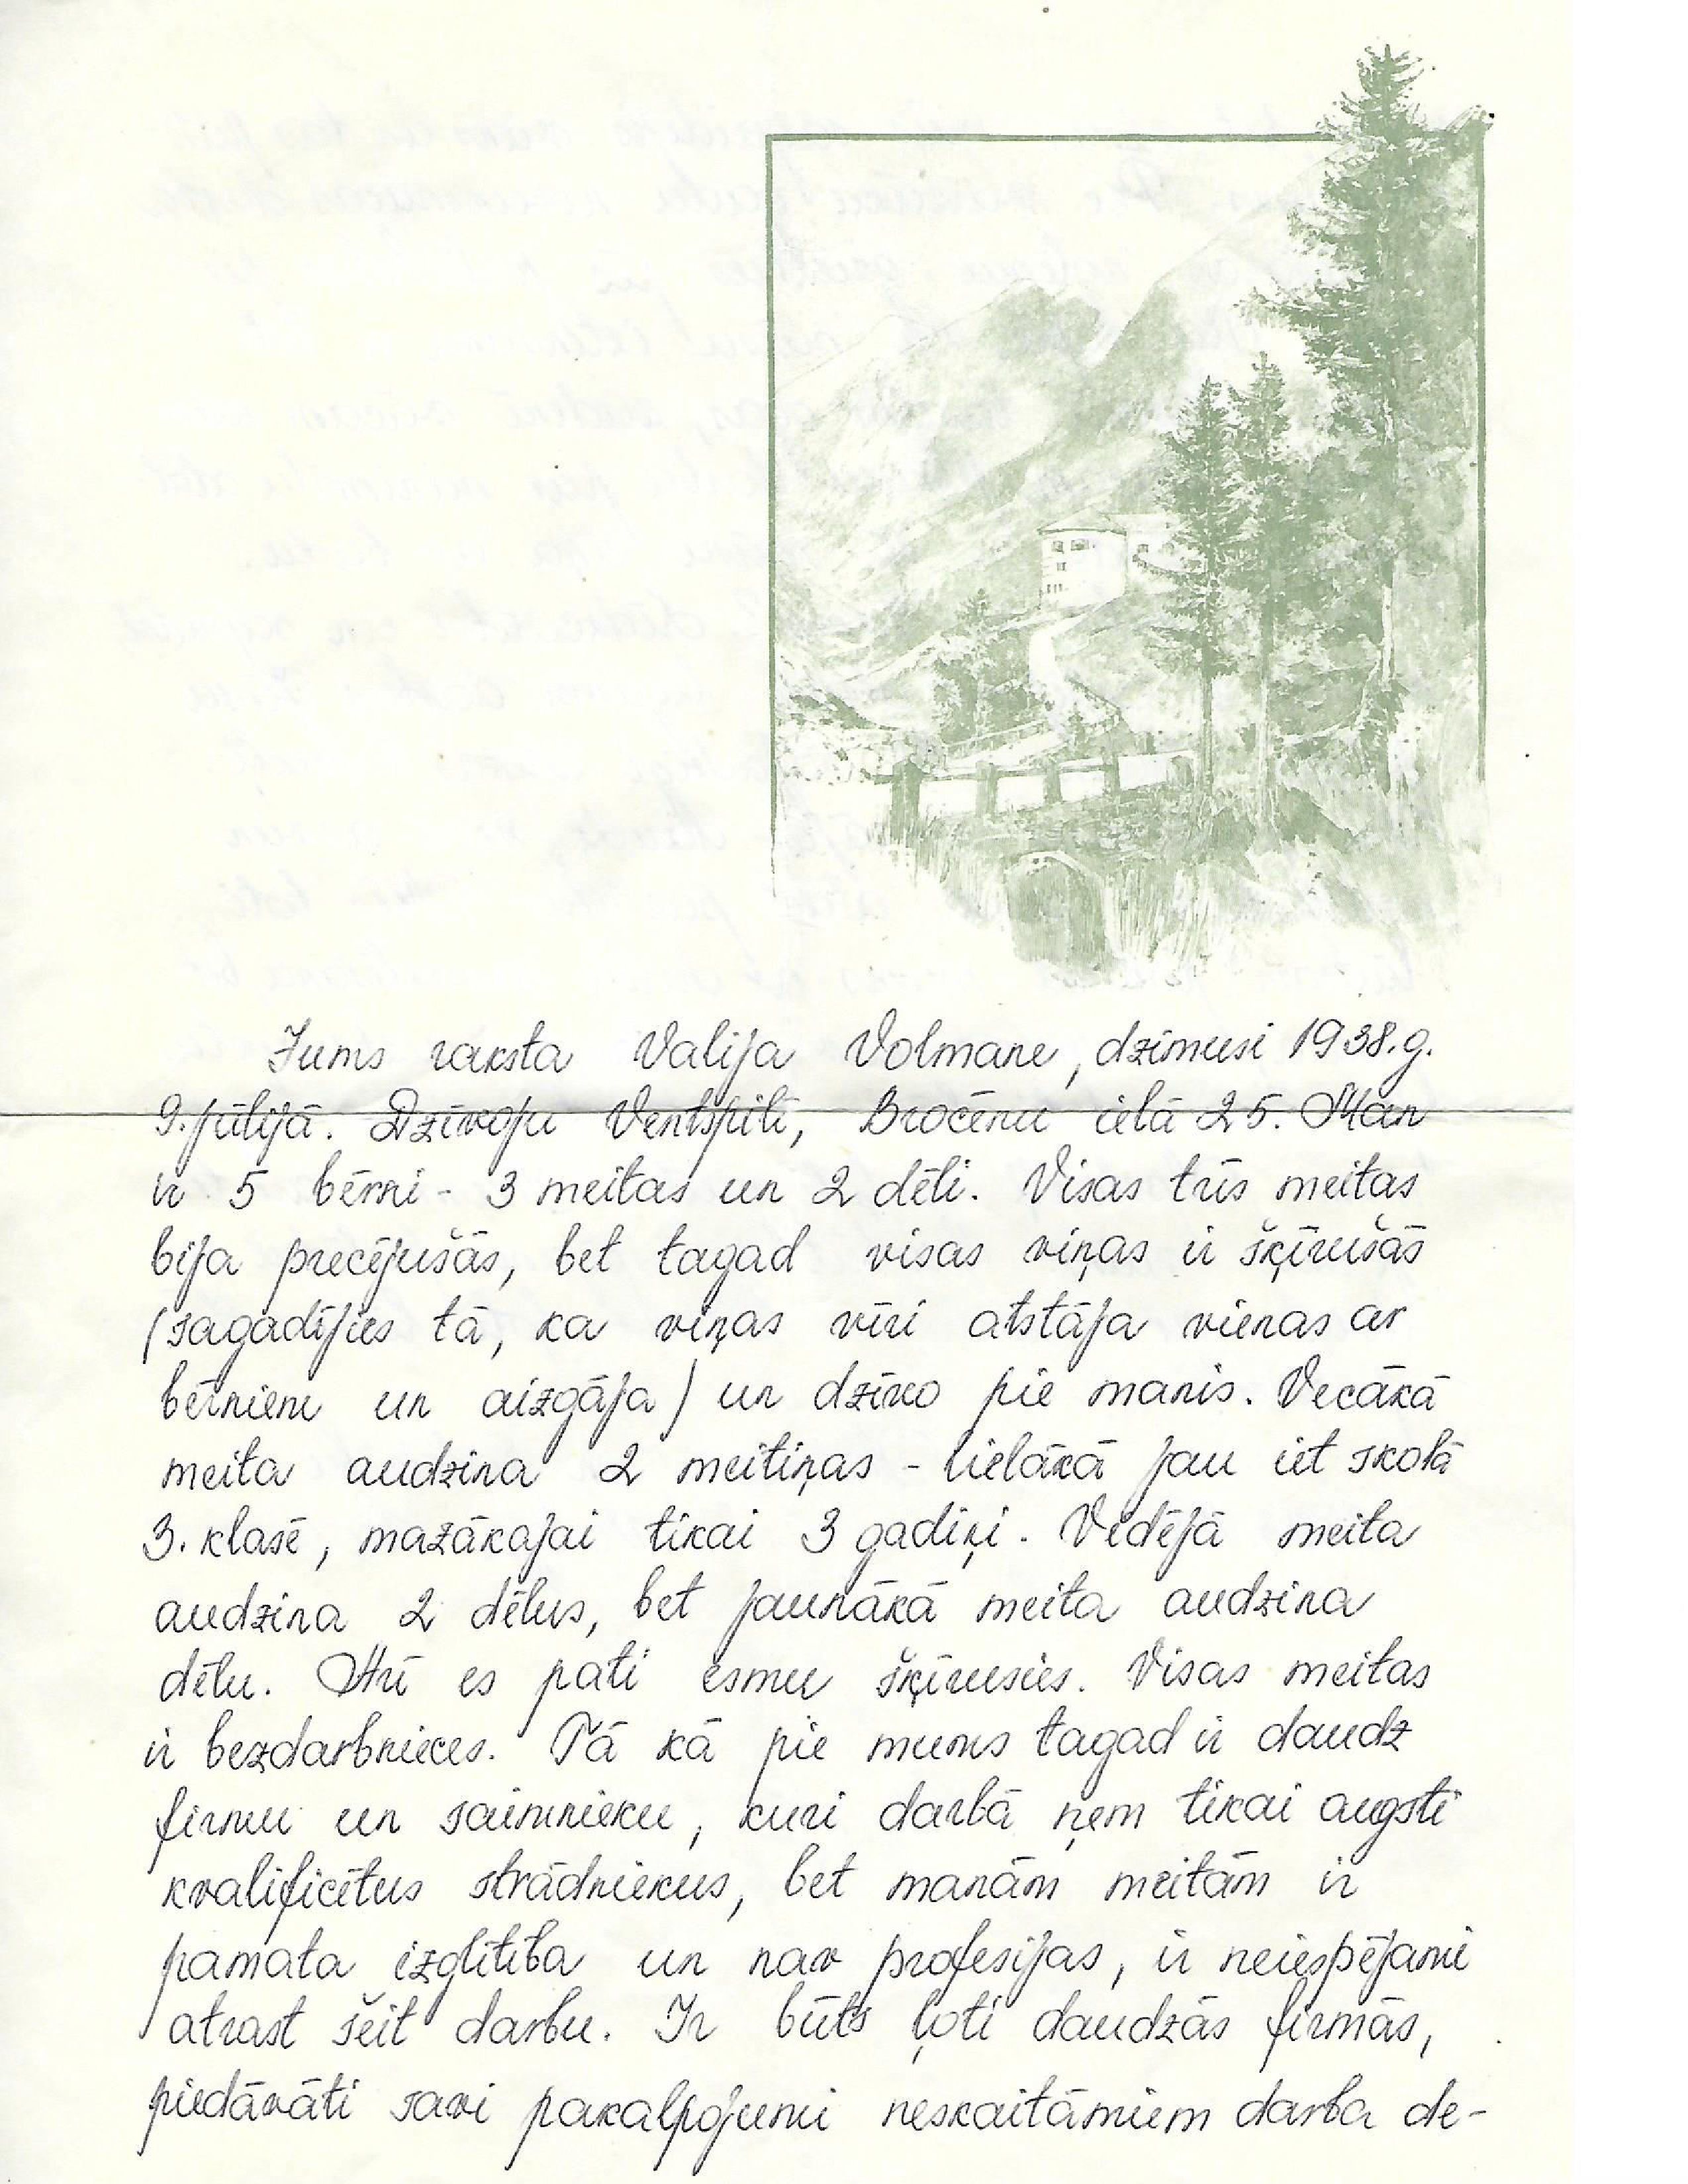 Jums raksta Valija Volmane, dzimusi 1938.g.
9.jūlijā. Dzīvoju Ventspilī, Brocēnu ielā 25. Man
ir 5 bērni - 3 meitas un 2 dēli. Visas trīs meitas
bija precējušās, bet tagad visas viņas ir šķīrušās
(sagadījies tā, ka viņas vīri atstāja vienas ar
bērniem un aizgāja) un dzīvo pie manis. Vecākā
meita audzina 2 meitiņas - lielākā jau iet skolā
3. klasē, mazākajai tikai 3 gadiņi. Vidējā meita
audzina 2 dēlus, bet jaunākā meita audzina
dēlu. Arī es pati esmu šķīrusies. Visas meitas
ir bezdarbnieces. Tā kā pie mums tagad ir daudz
firmu un saimnieku, kuri darbā ņem tikai augsti
kvalificētus strādniekus, bet manām meitām ir
pamata izglītība un nav profesijas, ir neiespējami
atrast šeit darbu. Ir būts ļoti daudzās firmās,
piedāvāti savi pakalpojumi neskaitāmiem darba de-